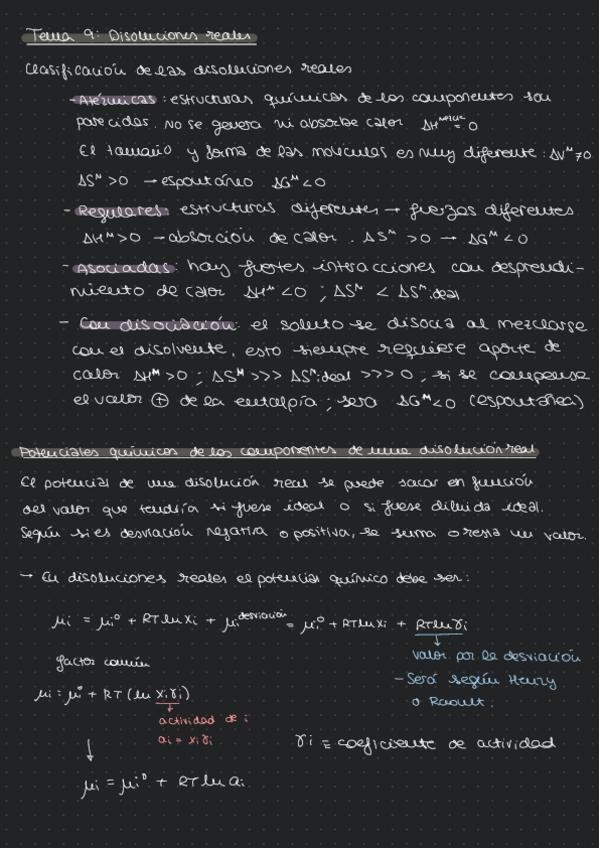 Tema 9: Disoluciones reales
Clasificación de las disoluciones reales
- Atérmicas: estructuras químicas de los componentes son
parecidas. No se genera ni absorbe calor ΔHᵐᵉᶻᶜˡᵃ = 0
El tamaño y forma de las moléculas es muy diferente: ΔVᴹ ≠ 0
ΔSᴹ > 0 → espontáneo ΔGᴹ < 0
- Regulares: estructuras diferentes → fuerzas diferentes
ΔHᴹ > 0 → absorción de calor. ΔSᴹ > 0 → ΔGᴹ < 0
- Asociadas: hay fuertes interacciones con desprendi-
miento de calor ΔHᴹ < 0 ; ΔSᴹ < ΔSᴹ ideal
- Con disociación: el soluto se disocia al mezclarse
con el disolvente, esto siempre requiere aporte de
calor ΔHᴹ > 0 ; ΔSᴹ >>> ΔSᴹ ideal >>> 0 ; si se compensa
el valor ⊕ de la entalpía ; será ΔGᴹ < 0 (espontánea)
Potenciales químicos de los componentes de una disolución real
El potencial de una disolución real se puede sacar en función
del valor que tendría si fuese ideal o si fuese diluida ideal.
Según si es desviación negativa o positiva, se suma o resta un valor.
→ En disoluciones reales el potencial químico debe ser:
μi = μi° + RT ln xi + μi ᵈᵉˢᵛⁱᵃᶜⁱóⁿ = μi° + RT ln xi + RT ln γi
factor común
valor por la desviación
- Será según Henry
o Raoult.
μi = μi° + RT (ln xi γi)
actividad de i
ai = xi γi
γi ≡ coeficiente de actividad
μi = μi° + RT ln ai